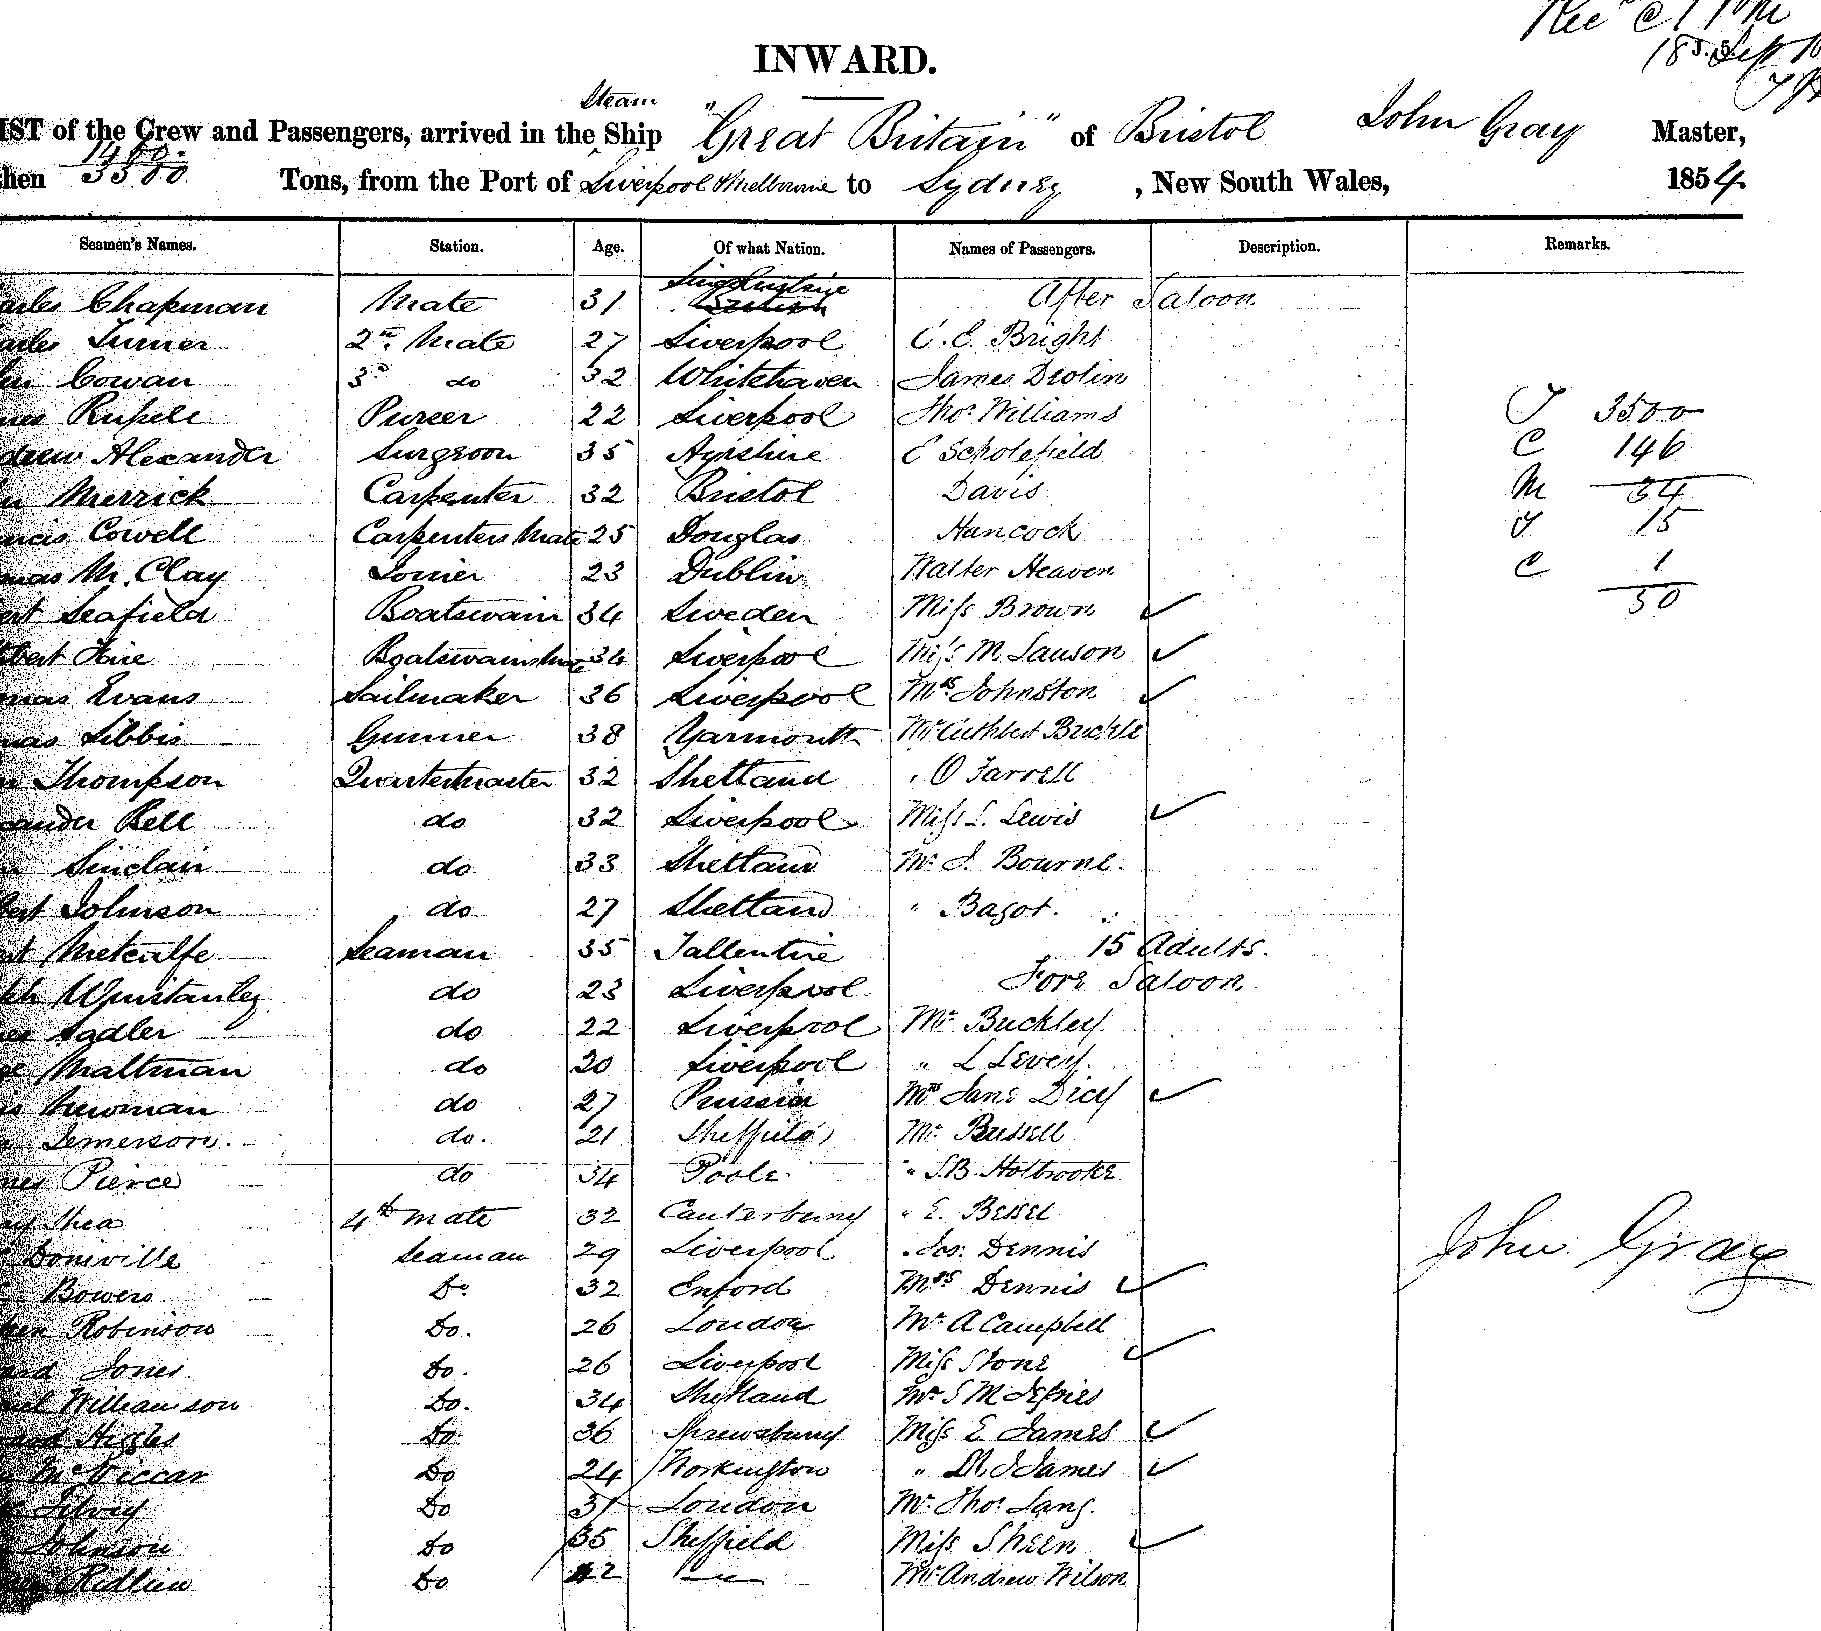 INWARD.
Steam
IST of the Crew and Passengers, arrived in the Ship "Great Britain" of Bristol John Gray Master,
hen 3500 Tons, from the Port of Liverpool Melbourne to Sydney, New South Wales, 1854
Seamen's Names. Station. Age. Of what Nation. Names of Passengers. Description. Remarks.
arles Chapman Mate 31 After Saloon
arles Turner 2nd Mate 27 Liverpool C. E. Bright
Cowan 3rd do 32 Whitehaven James Devlin
Russell Purser 22 Liverpool Thos. Williams T 3500
drew Alexander Surgeon 35 Ayrshire E Scholefield C 146
Merrick Carpenter 32 Bristol Davis M 34
ncis Cowell Carpenters Mate 25 Douglas Hancock 15
mas M. Clay Joiner 23 Dublin Walter Heaven C 1
Seafield Boatswain 34 Sweden Miss Brown 50
bert Boatswains Mate 34 Liverpool Miss M. Lauson
mas Evans Sailmaker 36 Liverpool Mrs Johnston
mas Libbis Gunner 38 Yarmouth Mr Cuthbert Buckle
Thompson Quartermaster 32 Shetland " O Farrell
xander Bell do 32 Liverpool Miss L. Lewis
Sinclair do 33 Shetland Mr. J. Bourne.
Johnson do 27 Shetland " Bagot.
Metcalfe Seaman 35 Tallentire 15 Adults.
Winstanley do 23 Liverpool Fore Saloon
Sadler do 22 Liverpool Mr Buckley
Maltman do 20 Liverpool " L Levery.
Newman do 27 Prussia Mrs Jane Dicy
Jemerson. do. 21 Sheffield Mr Bussell
Pierce do 34 Poole. " S. B. Holbrooke
Shea 4th Mate 32 Canterbury " E. Bessel
Domville Seaman 29 Liverpool " Jos. Dennis John Gray
Bowers Do 32 Enford Mrs Dennis
Robinson Do. 26 London Mr A Campbell
Jones Do. 26 Liverpool Miss Stone
Williamson Do. 34 Shetland Mr S M
Higgles Do 36 Shrewsbury Miss E James
McViccar Do 24 Workington " James
Do 31 London Mr. Thos. Lang.
Johnson Do 35 Sheffield Miss Sheen
Do 42 Mr Andrew Wilson